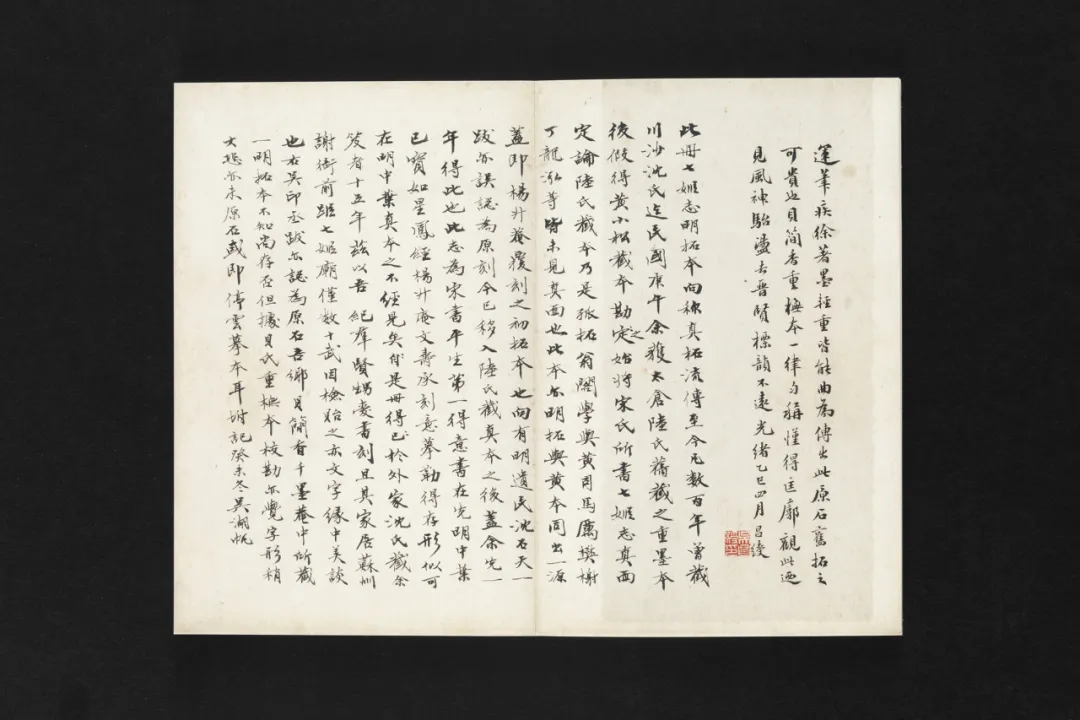 運筆疾徐著墨輕重皆能曲為傳出此原石舊拓之
可貴也貝簡香重橅本一律勻稱僅得匡廓觀此迺
見風神駘蕩去晉賢標韻不遠光緒乙巳四月呂綬
此冊七姬志明拓本向稱真拓流傳至今凡數百年曾藏
川沙沈氏迄民國庚午余獲太倉陸氏舊藏之重墨本
後假得黃小松藏本勘定之始將宋氏所書七姬志真面
定論陸氏藏本乃是孤拓翁閣學與黃司馬厲樊榭
丁龍泓等皆未見真面也此本亦明拓與黃本同出一源
蓋即楊升菴覆刻之初拓本也向有明遺民沈石天一
跋亦誤認為原刻今已移入陸氏藏真本之後蓋余先一
年得此也此志為宋書平生第一得意書在先明中葉
已寶如星鳳經楊升庵文壽承刻意摹勒得存形似可
在明中葉真本之不經見矣付是冊得已於外家沈氏藏余
笈者十五年茲以吾 紀羣賢甥委書刻且其家居蘇州
謝衙前距七姬廟僅數十武因檢貽之亦文字緣中美談
也右吳印丞跋亦認為原石吾鄉貝簡香千墨菴中所藏
一明拓本不知尚存否但據貝氏重橅本校勘亦覺字形稍
大恐亦未原石或即停雲摹本耳坿記癸未冬吳湖帆